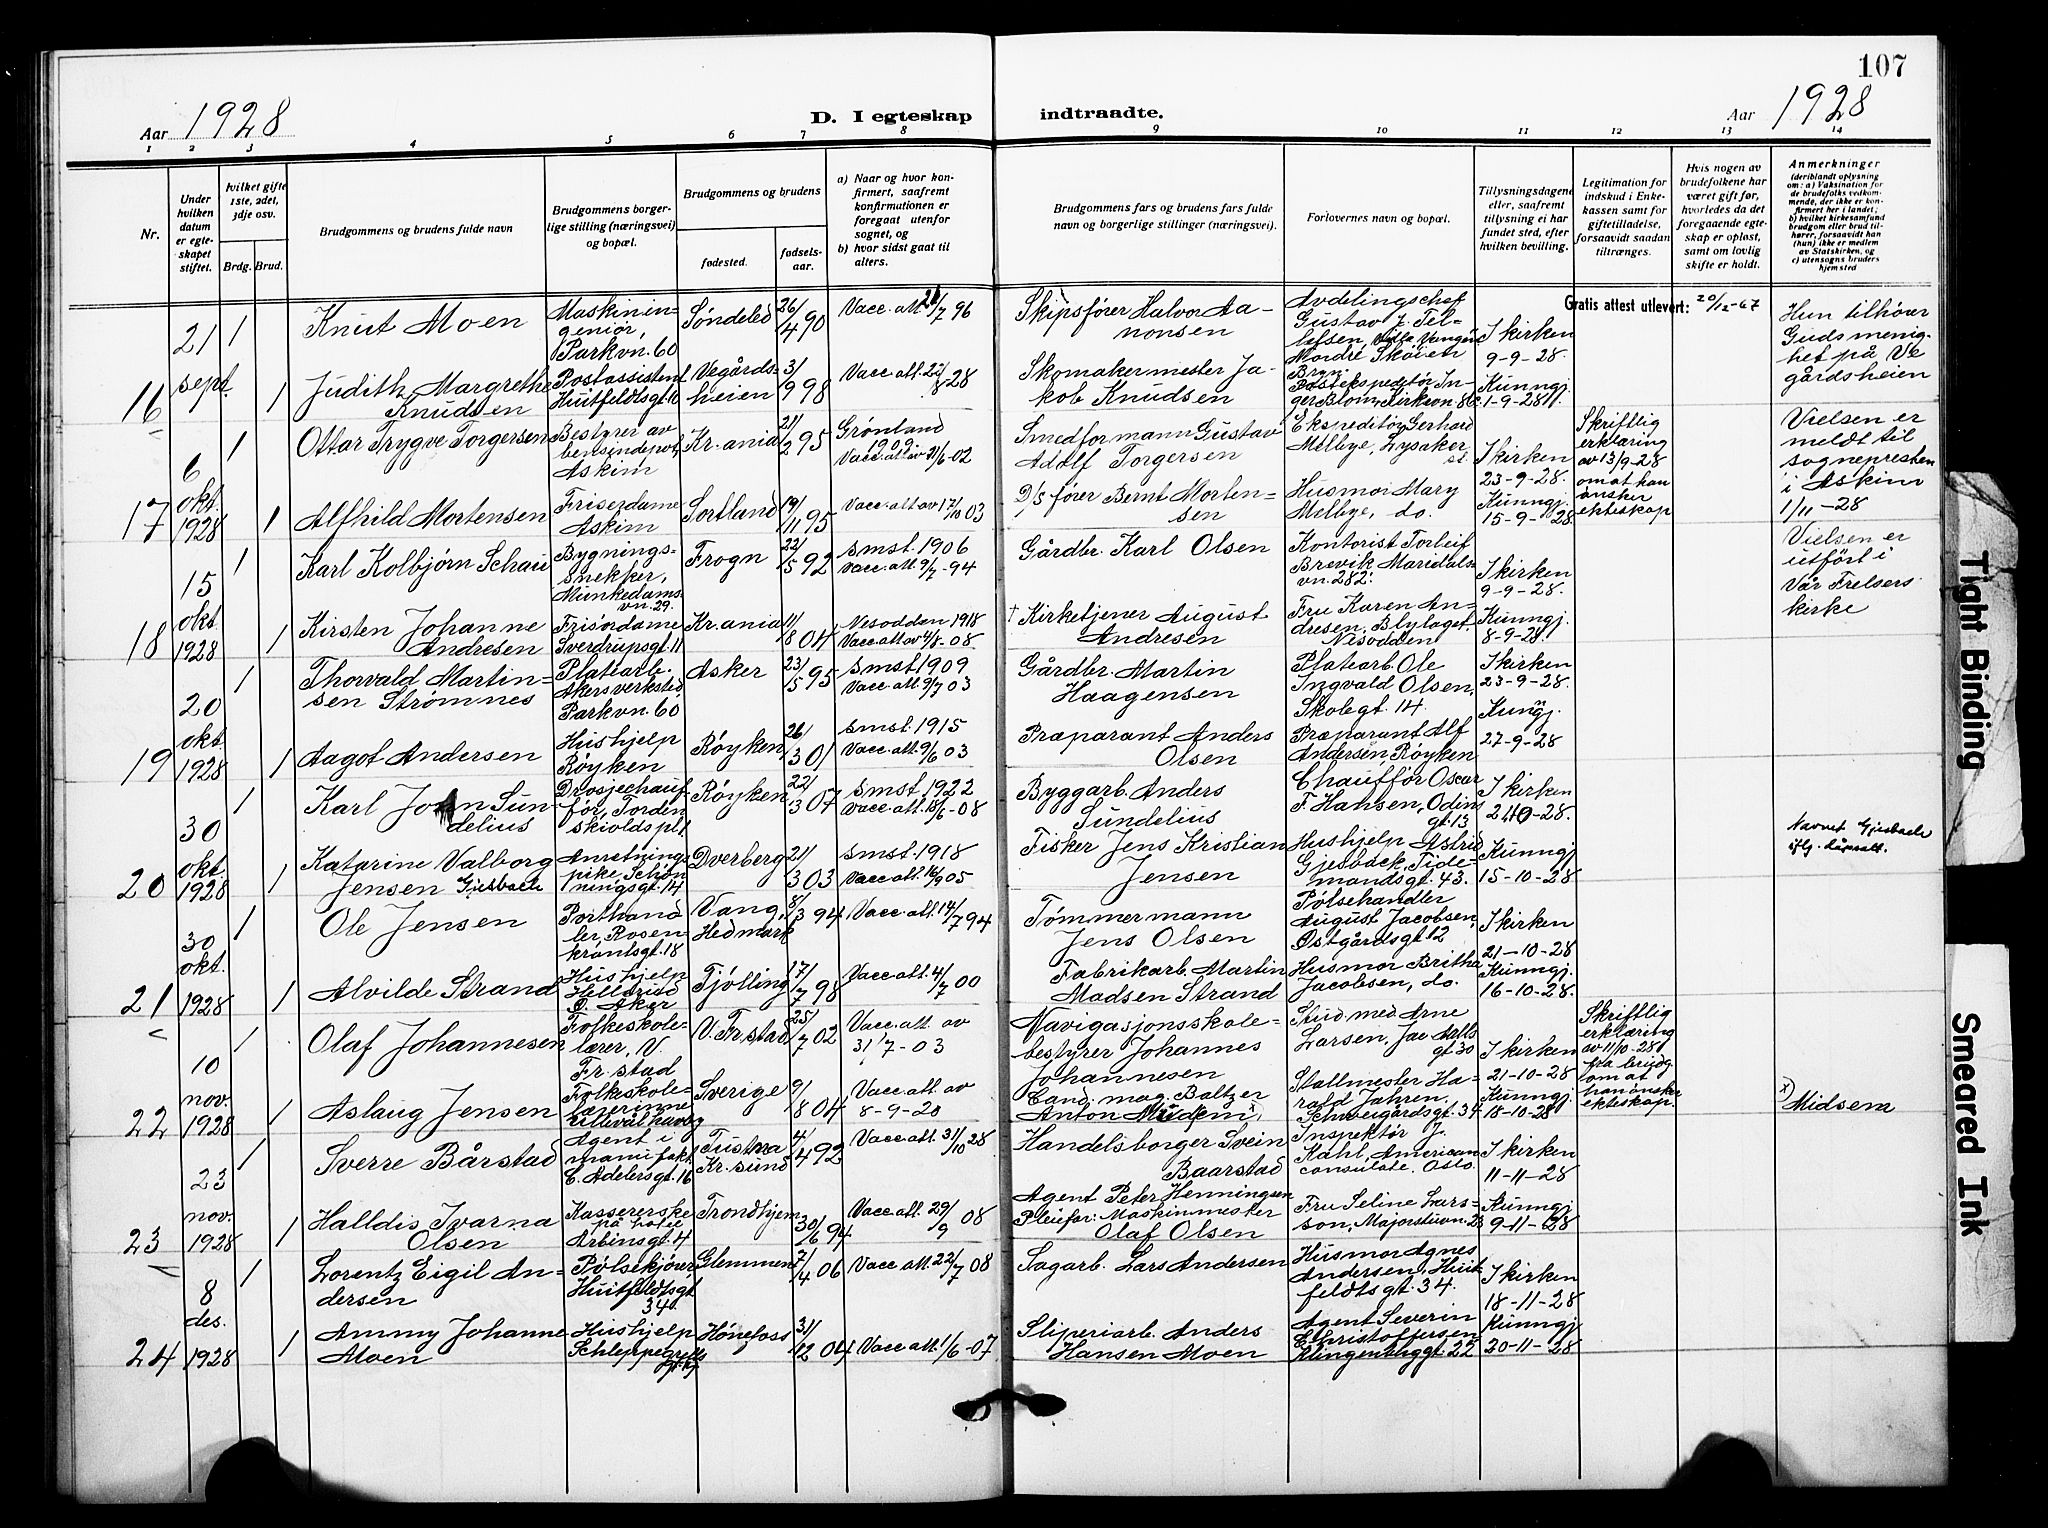 107
Aar 1928
D. I egteskap
indtraadte.
Aar 1928
1 2 3 4 5 6 7 8 9 10 11 12 13 14
Nr.
Under
hvilken
datum
er egte-
skapet
stiftet.
hvilket gifte
1ste, 2det,
3dje osv.
Brdg. Brud.
Brudgommens og brudens fulde navn
Brudgommens borger-
lige stilling (næringsvei)
og bopæl.
Brudgommens og brudens
fødested.
fødsels-
aar.
a) Naar og hvor kon-
firmert, saafremt
konfirmationen er
foregaat utenfor
sognet, og
b) hvor sidst gaat til
alters.
Brudgommens fars og brudens fars fulde
navn og borgerlige stillinger (næringsvei).
Forlovernes navn og bopæl.
Tillysningsdagene
eller, saafremt
tillysning ei har
fundet sted, efter
hvilken bevilling.
Legitimation for
indskud i Enke-
kassen samt for
giftetilladelse,
forsaavidt saadan
tiltrænges.
Hvis nogen av
brudefolkene har
været gift før,
hvorledes da det
foregaaende egte-
skap er opløst,
samt om lovlig
skifte er holdt.
Anmerkninger
(deriblandt oplysning
om: a) Vaksination for
de brudefolks vedkom-
mende, der ikke er kon-
firmert her i landet;
b) hvilket kirkesamfund
brudgom eller brud til-
hører, forsaavidt han
(hun) ikke er medlem
av Statskirken, og
c) utensogns bruders
hjemsted
16
21
sept.
1
Knut Moen
Maskinin-
geniør,
Parkvn. 60
Søndeled
26/4 90
Vacc. att. 21/7 96
Skipsfører Halvor Aa-
nonsen
Avdelingschef
Gustav J. Tel-
lefsen,
Nordre Skøien
Bryn.
I kirken
9-9-28.
Gratis attest utlevert: 20/12-67
Hun tilhører
Guds menig-
het på Ve
gårdsheien
1
Judith Margrethe
Knudsen
Postassistent
Huitfeldtsgt. 10
Vegårds-
heien
3/9 98
Vacc. att. 22/8 28
Skomakermester Ja-
kob Knudsen
Postekspeditør In-
ger Blom, Kirkevn. 86c.
Kunngj.
1-9-28
17
6
okt.
1928
1
Ottar Trygve Torgersen
Bestyrer av
bensindepot,
Askim
Kr.ania
21/2 95
Grønland
1909
Vacc. att. av 21/6-02
Smedformann Gustav
Adolf Torgersen
Ekspeditør Gerhard
Melbye, Lysaker
st.
I kirken
23-9-28.
Skriftlig
erklæring
av 13/9-28
om at han
ønsker
ekteskap
Vielsen er
meldt til
sognepresten
i Askim
1/11-28
1
Alfhild Mortensen
Friserdame
Askim
Sortland
19/11 95
Vacc. att av 17/10 03
D/s fører Bernt Morten-
sen
Husmor Mary
Melbye, do.
Kunngj.
15-9-28.
18
15
okt.
1928
1
Karl Kolbjørn Schau
Bygnings-
snekker,
Munkedams-
vn. 29.
Frogn
22/5 92
smst. 1906
Vacc. att. 9/7-94
Gårdbr. Karl Olsen
Kontorist Torleif
Brevik Maridals-
vn. 282.
I kirken
9-9-28.
Vielsen er
utført i
Vår Frelsers
kirke
1
Kirsten Johanne
Andresen
Frisørdame
Sverdrupsgt. 11
Kr.ania
11/8 04
Nesodden 1918
Vacc. att av 4/8-08.
† Kirketjener August
Andresen
Fru Karen An-
dresen, Blylaget,
Nesodden
Kunngj.
8-9-28
19
20
okt.
1928
1
Thorvald Martin-
sen Strømnes
Platearb.
Akers verksted,
Parkvn. 60
Asker
23/5 95
smst. 1909
Vacc. att. 9/7 03
Gårdbr. Martin
Haagensen
Platearb. Ole
Ingvald Olsen,
Skolegt. 14.
I kirken
23-9-28.
1
Aagot Andersen
Hushjelp
Røyken
Røyken
26/3 01
smst. 1915
Vacc. att. 9/6 03
Præparant Anders
Olsen
Præparant Alf
Andersen Røyken
Kungj.
27-9-28
20
30
okt.
1928
1
Karl John Sun-
delius
Drosjechauf-
før, Torden-
skioldspl.
Røyken
22/3 07
smst. 1922
Vacc. att. 18/6-08
Byggarb. Anders
Sundelius
Chauffør Oscar
F. Hansen, Odins
gt. 13
I kirken
21-10-28.
Navnet Gjesbach
iflg. dåpsatt.
1
Katarine Valborg
Jensen Gjesbach
Anretnings-
pike, Schøn-
ningsgt. 14
Dverberg
21/3 03
smst. 1918
Vacc. att. 16/9 05
Fisker Jens Kristian
Jensen
Hushjelp Astrid
Gjesback, Tide-
mandsgt. 43.
Kunngj.
15-10-28
21
30
okt.
1928
1
Ole Jensen
Porthand-
ler, Rosen-
krantsgt. 18
Vang,
Hedmark
8/3 94
Vacc. att. 14/7 94
Tømmermann
Jens Olsen
Pølsehandler
August Jacobsen,
Østgårdsgt. 12
I kirken
21-10-28
1
Alvilde Strand
Hushjelp
Hellerud
Ø. Aker
Tjølling
17/7 98
Vacc. att. 4/7 00
Fabrikarb. Martin
Madsen Strand
Husmor Britha
Jacobsen, do.
Kunngj.
16-10-28.
22
10
nov.
1928
1
Olaf Johannesen
Folkeskole-
lærer, V.
Fr.stad
V. Fr.stad
25/7 02
Vacc. att. av
31-7-03
Navigasjonsskole-
bestyrer Johannes
Johannesen
Stud. med. Arne
Larsen, Jac Aalls
gt. 30
I kirken
21-10-28
Skriftlig
erklæring
av 11/10-28
fra brudg.
om at
han ønsker
ekteskap.
1
Aslaug Jensen
Folkeskole-
lærerinne
Ullevål haveby
Sverige
9/8 04
Vacc. att. av
8-9-20
Cand. mag. Baltzer
Anton
Stallmester Ha-
rald Jahren,
Schweigårdsgt. 34
Kunngj.
18-10-28
x) Midsem
23
23
nov.
1928
1
Sverre Bårstad
Agent i
manufakt.
C. Adelersgt. 16
Tustna
Kr.sund
4/4 92
Vacc. att. 31/10 28
Handelsborger Svein
Baarstad
Inspektør J.
Kahl, American
consulate. Oslo.
I kirken
11-11-28
1
Halldis Ivarna
Olsen
Kassererske
på hotel
Arbinsgt. 4
Trondhjem
30/6 94
Vacc. att. 29/9 08
Agent Peter Henningsen
Pleiefar: Maskinmester
Olaf Olsen
Fru Seline Lars-
son, Majorstuvn. 23
Kunngj
9-11-28
24
8
des.
1928
1
Lorentz Eigil An-
dersen
Pølsekjører
Huitfeldtsgt.
34
Glemmen
7/4 06
Vacc. att. 22/7 08
Sagarb. Lars Andersen
Husmor Agnes
Andersen, Huit-
feldtsgt. 34.
I kirken
18-11-28
1
Ammy Johanne
Moen
Hushjelp
Schleppegrells
Hønefoss
31/12 04
Vacc. att. 1/6-07
Sliperiarb. Anders
Hansen Moen
Agent Severin
Christoffersen
Klingenberggt. 22
Kunngj
20-11-28
Tight Binding
Smeared Ink